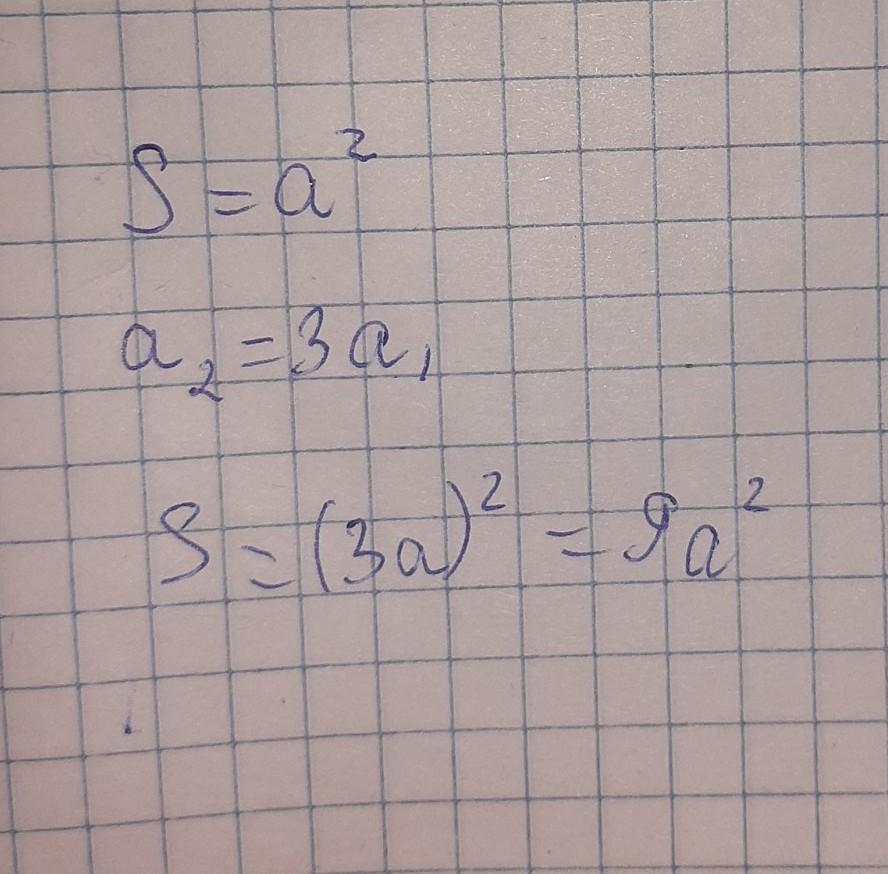 S = a²
a₂ = 3a₁
S = (3a)² = 9a²